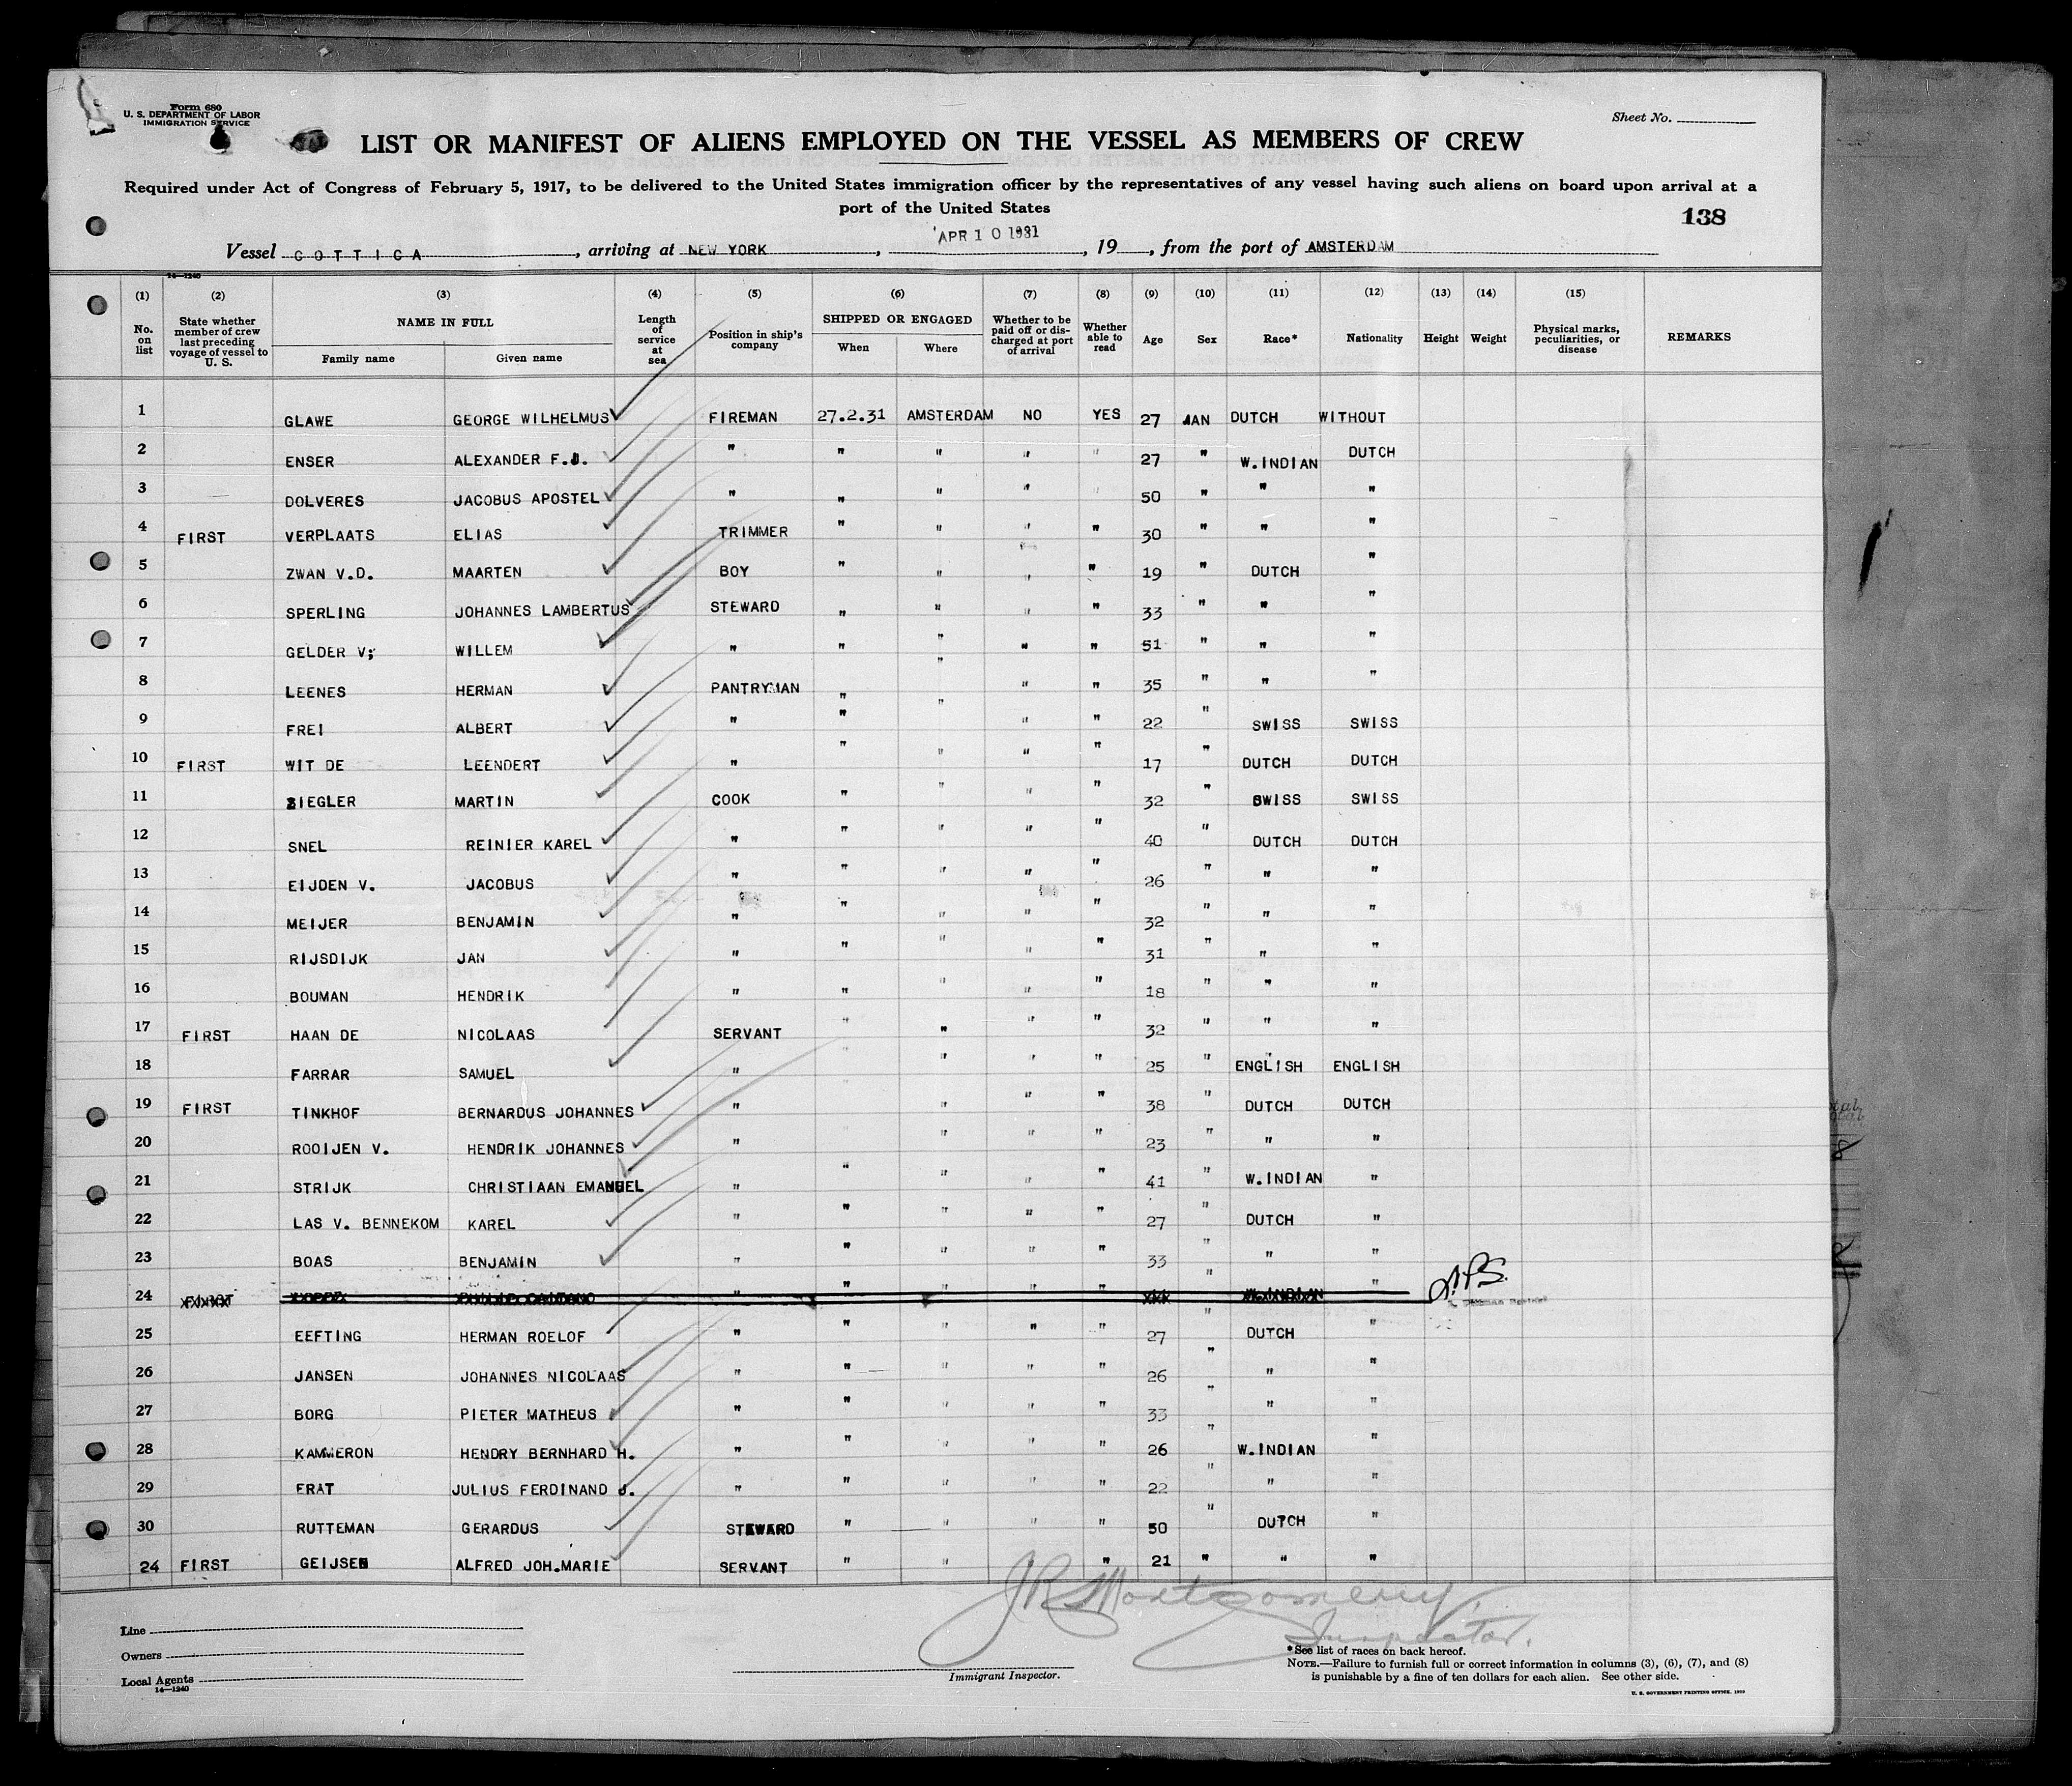 Form 680
U. S. DEPARTMENT OF LABOR
IMMIGRATION SERVICE
Sheet No.
LIST OR MANIFEST OF ALIENS EMPLOYED ON THE VESSEL AS MEMBERS OF CREW
Required under Act of Congress of February 5, 1917, to be delivered to the United States immigration officer by the representatives of any vessel having such aliens on board upon arrival at a
port of the United States
138
Vessel COTTICA, arriving at NEW YORK, APR 10 1931, 19, from the port of AMSTERDAM
14—1240
(1) (2) (3) (4) (5) (6) (7) (8) (9) (10) (11) (12) (13) (14) (15)
No. on list State whether member of crew last preceding voyage of vessel to U. S. NAME IN FULL Family name Given name Length of service at sea Position in ship's company SHIPPED OR ENGAGED When Where Whether to be paid off or discharged at port of arrival Whether able to read Age Sex Race* Nationality Height Weight Physical marks, peculiarities, or disease REMARKS
1 GLAWE GEORGE WILHELMUS FIREMAN 27.2.31 AMSTERDAM NO YES 27 MAN DUTCH WITHOUT
2 ENSER ALEXANDER F.J. " " " " " 27 " W.INDIAN DUTCH
3 DOLVERES JACOBUS APOSTEL " " " " 50 " " "
4 FIRST VERPLAATS ELIAS TRIMMER " " " " 30 " " "
5 ZWAN V.D. MAARTEN BOY " " " " 19 " DUTCH "
6 SPERLING JOHANNES LAMBERTUS STEWARD " " " " 33 " " "
7 GELDER V; WILLEM " " " " " 51 " " "
8 LEENES HERMAN PANTRYMAN " " " " 35 " " "
9 FREI ALBERT " " " " " 22 " SWISS SWISS
10 FIRST WIT DE LEENDERT " " " " " 17 " DUTCH DUTCH
11 ZIEGLER MARTIN COOK " " " " 32 " SWISS SWISS
12 SNEL REINIER KAREL " " " " " 40 " DUTCH DUTCH
13 EIJDEN V. JACOBUS " " " " " 26 " " "
14 MEIJER BENJAMIN " " " " " 32 " " "
15 RIJSDIJK JAN " " " " " 31 " " "
16 BOUMAN HENDRIK " " " " " 18 " " "
17 FIRST HAAN DE NICOLAAS SERVANT " " " " 32 " " "
18 FARRAR SAMUEL " " " " " 25 " ENGLISH ENGLISH
19 FIRST TINKHOF BERNARDUS JOHANNES " " " " 38 " DUTCH DUTCH
20 ROOIJEN V. HENDRIK JOHANNES " " " " 23 " " "
21 STRIJK CHRISTIAAN EMANUEL " " " " " 41 " W.INDIAN "
22 LAS V. BENNEKOM KAREL " " " " " 27 " DUTCH "
23 BOAS BENJAMIN " " " " " 33 " " "
24 FIRST " " " " " " W.INDIAN "
25 EEFTING HERMAN ROELOF " " " " " 27 " DUTCH "
26 JANSEN JOHANNES NICOLAAS " " " " " 26 " " "
27 BORG PIETER MATHEUS " " " " " 33 " " "
28 KAMMERON HENDRY BERNHARD H. " " " " " 26 " W.INDIAN "
29 ERAT JULIUS FERDINAND J. " " " " " 22 " " "
30 RUTTEMAN GERARDUS STEWARD " " " " 50 " DUTCH "
24 FIRST GEIJSEN ALFRED JOH.MARIE SERVANT " " " 21 " " "
J R Montgomery
Inspector.
Line
Owners
Local Agents
14—1240
Immigrant Inspector.
*See list of races on back hereof.
NOTE.—Failure to furnish full or correct information in columns (3), (6), (7), and (8)
is punishable by a fine of ten dollars for each alien. See other side.
U. S. GOVERNMENT PRINTING OFFICE.